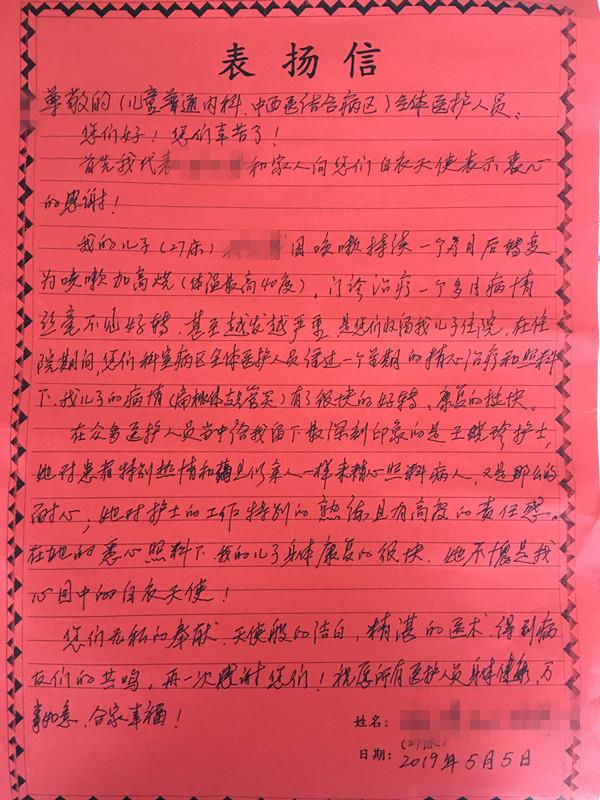 表扬信
尊敬的(儿童普通内科、中西医结合病区)全体医护人员:
您们好!您们辛苦了!
首先我代表 和家人向您们白衣天使表示衷心
的感谢!
我的儿子(27床) 因咳嗽持续一个多月后转变
为咳嗽加高烧(体温最高40度),门诊治疗一个多月病情
丝毫不见好转,甚至越发越严重,是您们收留我儿子住院,在住
院期间,您们科室病区全体医护人员通过一个星期的精心治疗和照料
下,我儿子的病情(扁桃体支管炎)有了很快的好转、康复的挺快。
在众多医护人员当中给我留下最深刻印象的是王晓玲护士,
她对患者特别热情和蔼且似亲人一样来精心照料病人,又是那么的
耐心;她对护士的工作特别的熟练且有高度的责任感。
在她的悉心照料下,我的儿子身体康复的很快,她不愧是我
心目中的白衣天使!
您们无私的奉献,天使般的洁白,精湛的医术,得到病
友们的共鸣。再一次感谢您们!祝愿所有医护人员身体健康,万
事如意,合家幸福!
姓名:
(27床)
日期: 2019年5月5日